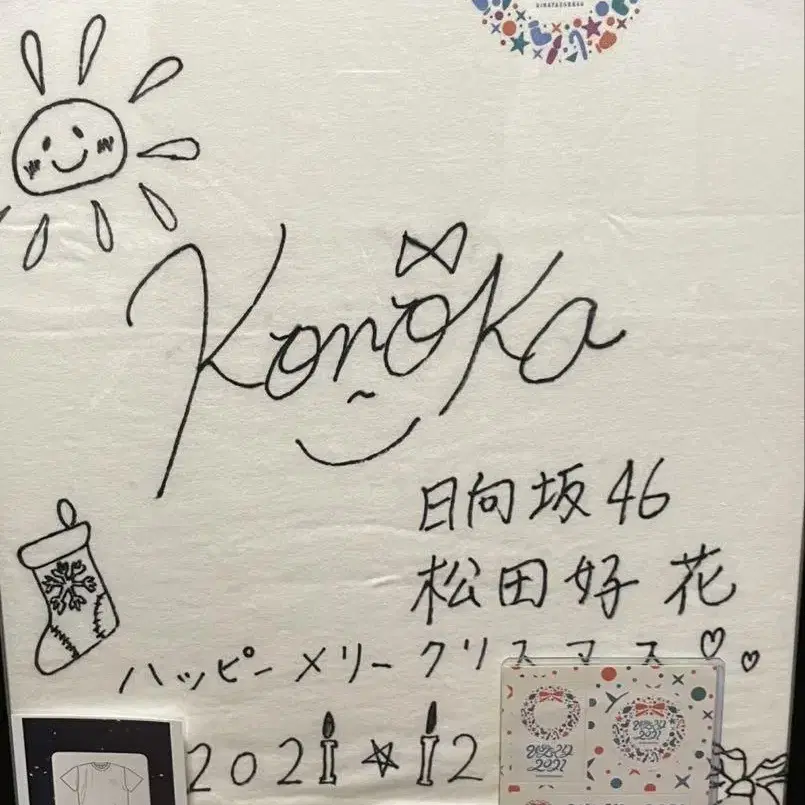 Konoka
日向坂46
松田好花
ハッピーメリークリスマス♡♡
2021☆12
2021
2021